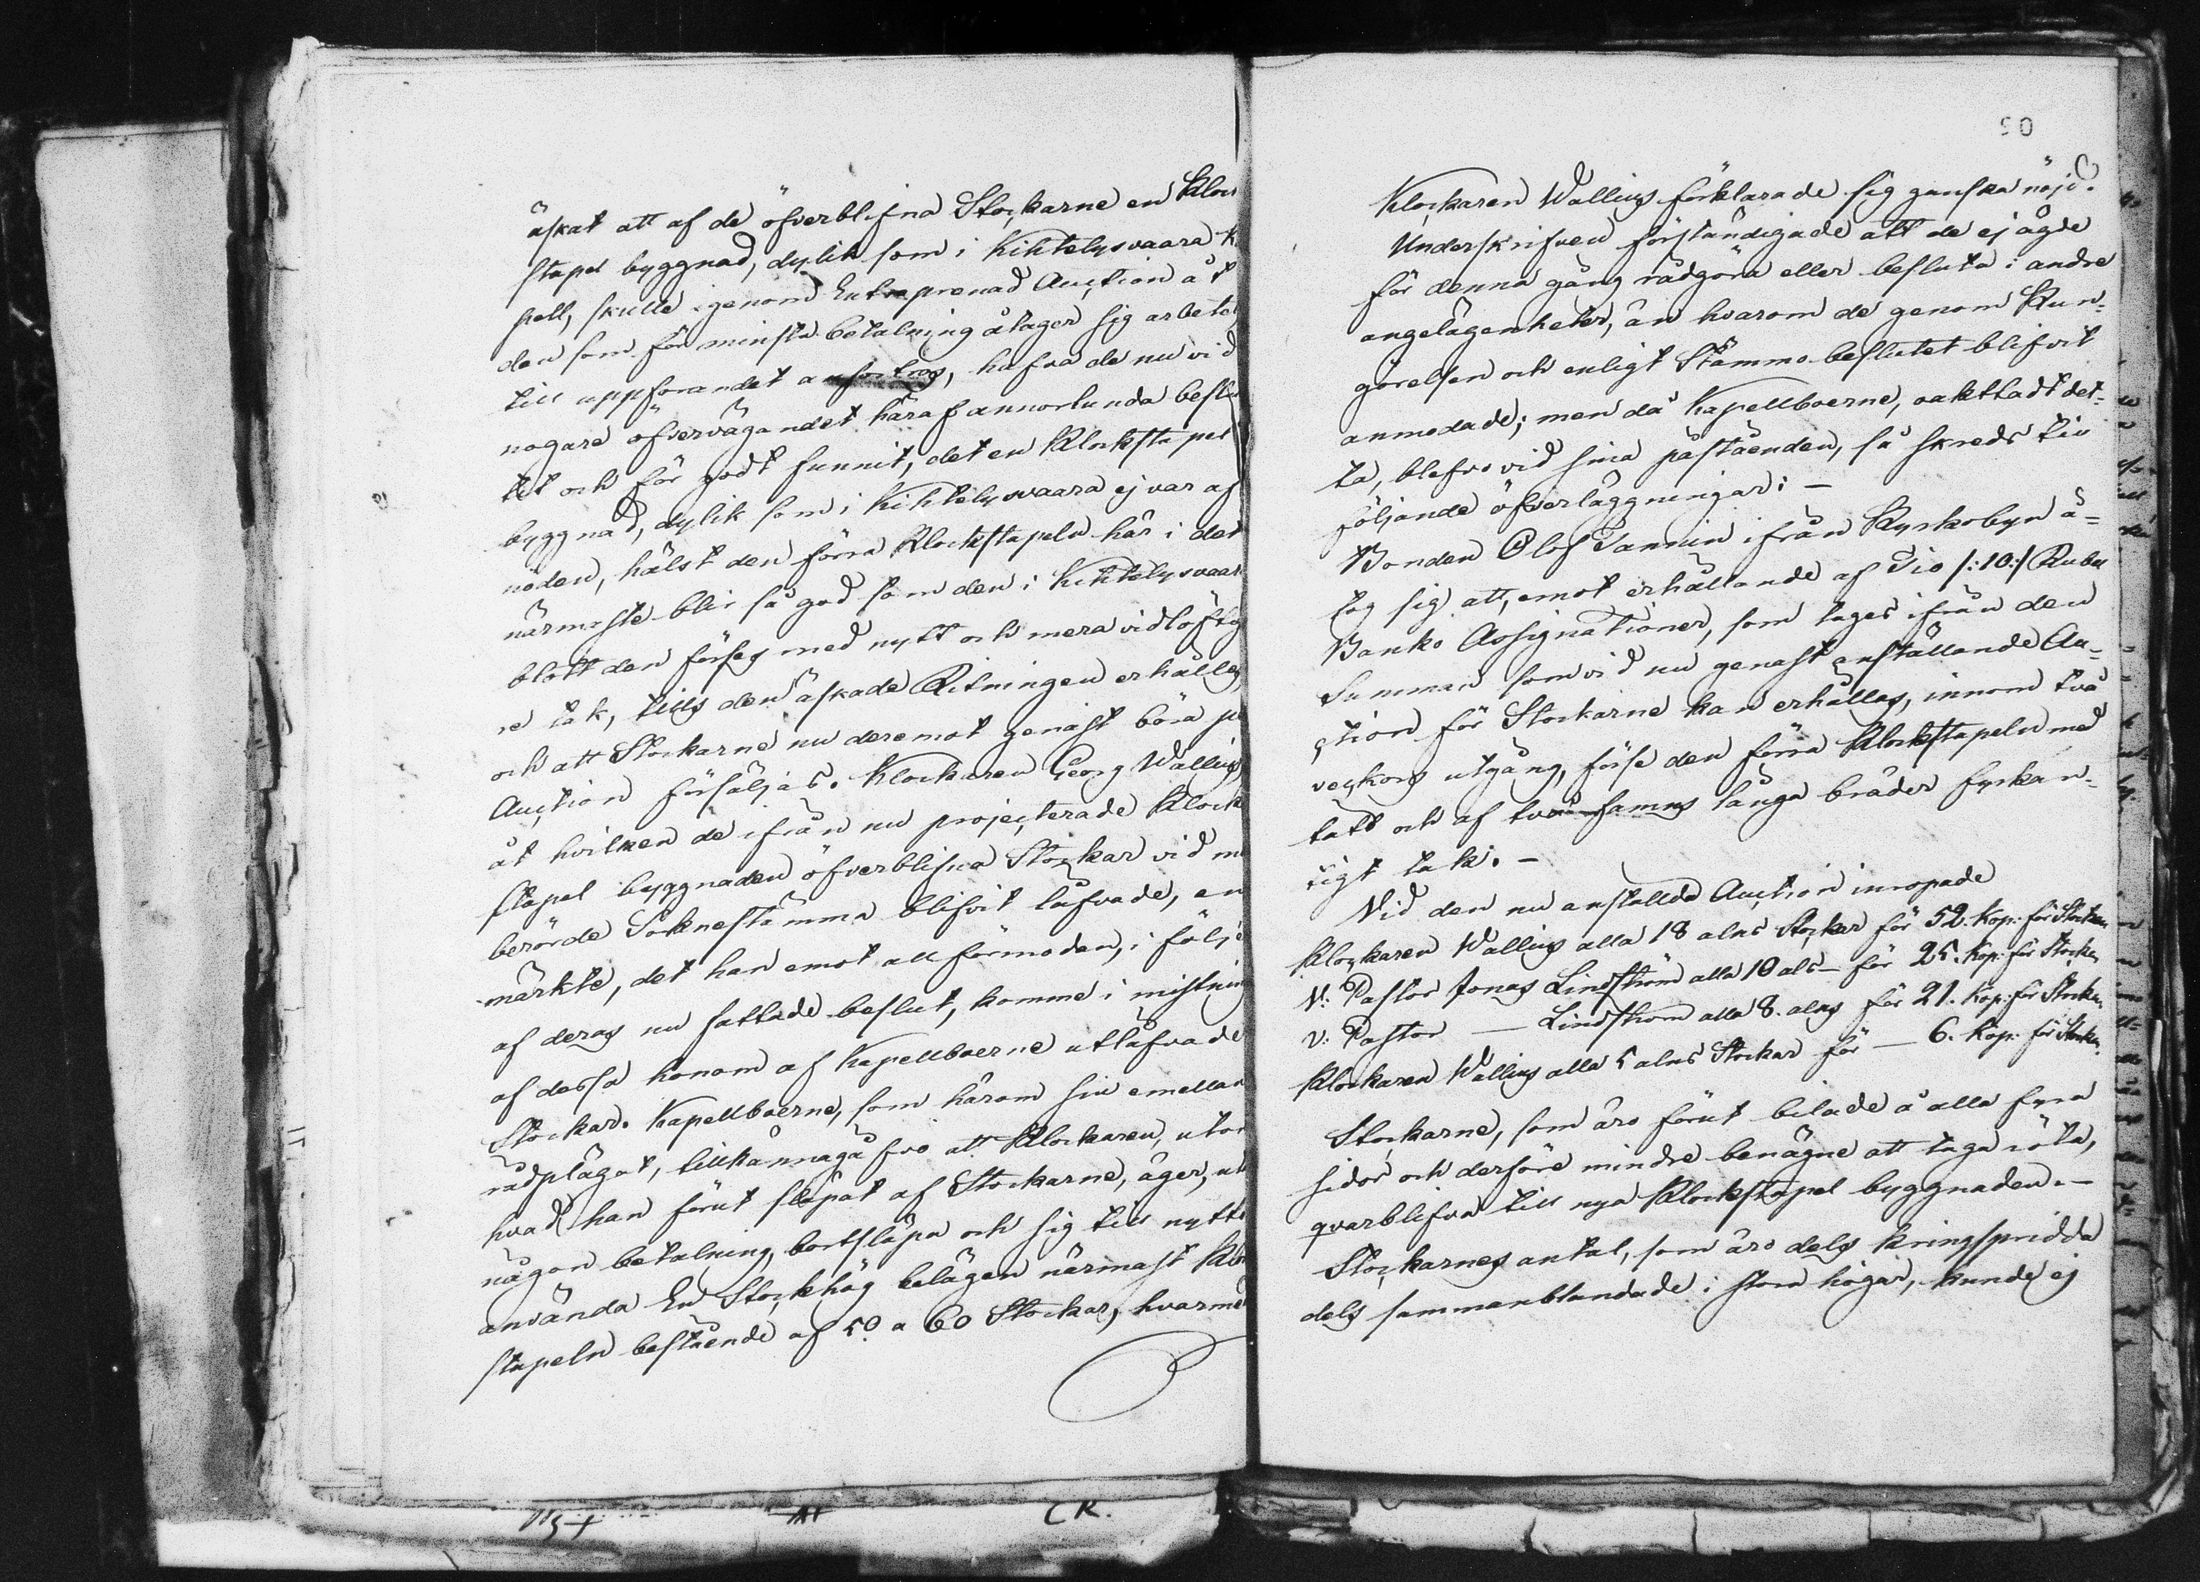 äskat att af de öfverblifna Stockarne en Klock
stapel byggnad, dylik som i Kihtelysvaara K
pell, skulle igenom Entreprenad Auction åt
den som för minsta betalning åtager sig arbetet
till uppförandet anförtros, hafva de nu vid
nogare öfvervägandet häraf annorlunda beslu
tit och för godt funnit, det en Klockstapel
byggnad, dylik som i Kihtelysvaara ej var af
nöden, hälst den förra Klockstapeln här i det
närmaste blir så god som den i Kihtelysvaar
blott den förses med nytt och mera vidlöftig
re tak, tills den äskade Ritningen erhålles,
och att Stockarne nu deremot genast böra på
Auction försäljas. Klockaren Georg Wallius,
åt hvilken de ifrån nu projecterade Klock
stapel byggnaden öfverblifna Stockar vid me
berörde Sockenstämma blifvit lufvade, an
märkte, det han emot all förmodan, i följe
af deras nu fattade beslut, komme i mistning
af dessa honom af Kapellboerne utlåfvade
Stockar. Kapellboerne, som härom sin emellan
rådplägat, tillkännagåfvo att Klockaren, utom
hvad han förut släpat af Stockarne, äger, ut
någon betalning, bortsläpa och sig till nytto
använda En Stockhög belägen närmast Klo
stapeln bestående af 50 a 60 Stockar, hvarmed
90
Klockaren Wallius förklarade sig ganska nöjd.
Underskrifven förständigade att de ej ägde
för denna gång rådgöra eller besluta i andre
angelägenheter, än hvarom de genom Kun-
görelsen och enligt Stämmo beslutet blifvit
anmodade; men då Kapellboerne, oaktadt det-
ta, blefvo vid sina påståenden, så skreds till
följande öfverläggningar: -
Bonden Olof Tannin ifrån Kyrkobyn å-
tog sig att, emot erhållande af Tio /:10:/ Rubel
Banko Assignationer, som tages ifrån den
Summan som vid nu genast anställande Au-
ction för Stockarne kan erhållas, innom två
veckors utgång, förse den förra Klockstapeln med
tätt och af två famns långa bräder fyrkan-
tigt tak. -
Vid den nu anställda Auction inropade
Klockaren Wallius alla 18 alns Stockar för 52. Kop: för Stocken
V: Pastor Jonas Lindström alla 10 als - för 25. Kop: för Stocken
V: Pastor - Lindström alla 8. alns för 21. Kop: för Stocken
Klockaren Wallius alla 5 alns Stockar för - 6. Kop: för Stocken.
Stockarne, som äro förut bilade å alla fyra
sidor och derföre mindre benägne att taga röta,
qvarblifva till nya Klockstapel byggnaden. -
Stockarnes antal, som äro dels kringspridda
dels sammanblandade i stora högar, kunde ej
CK.